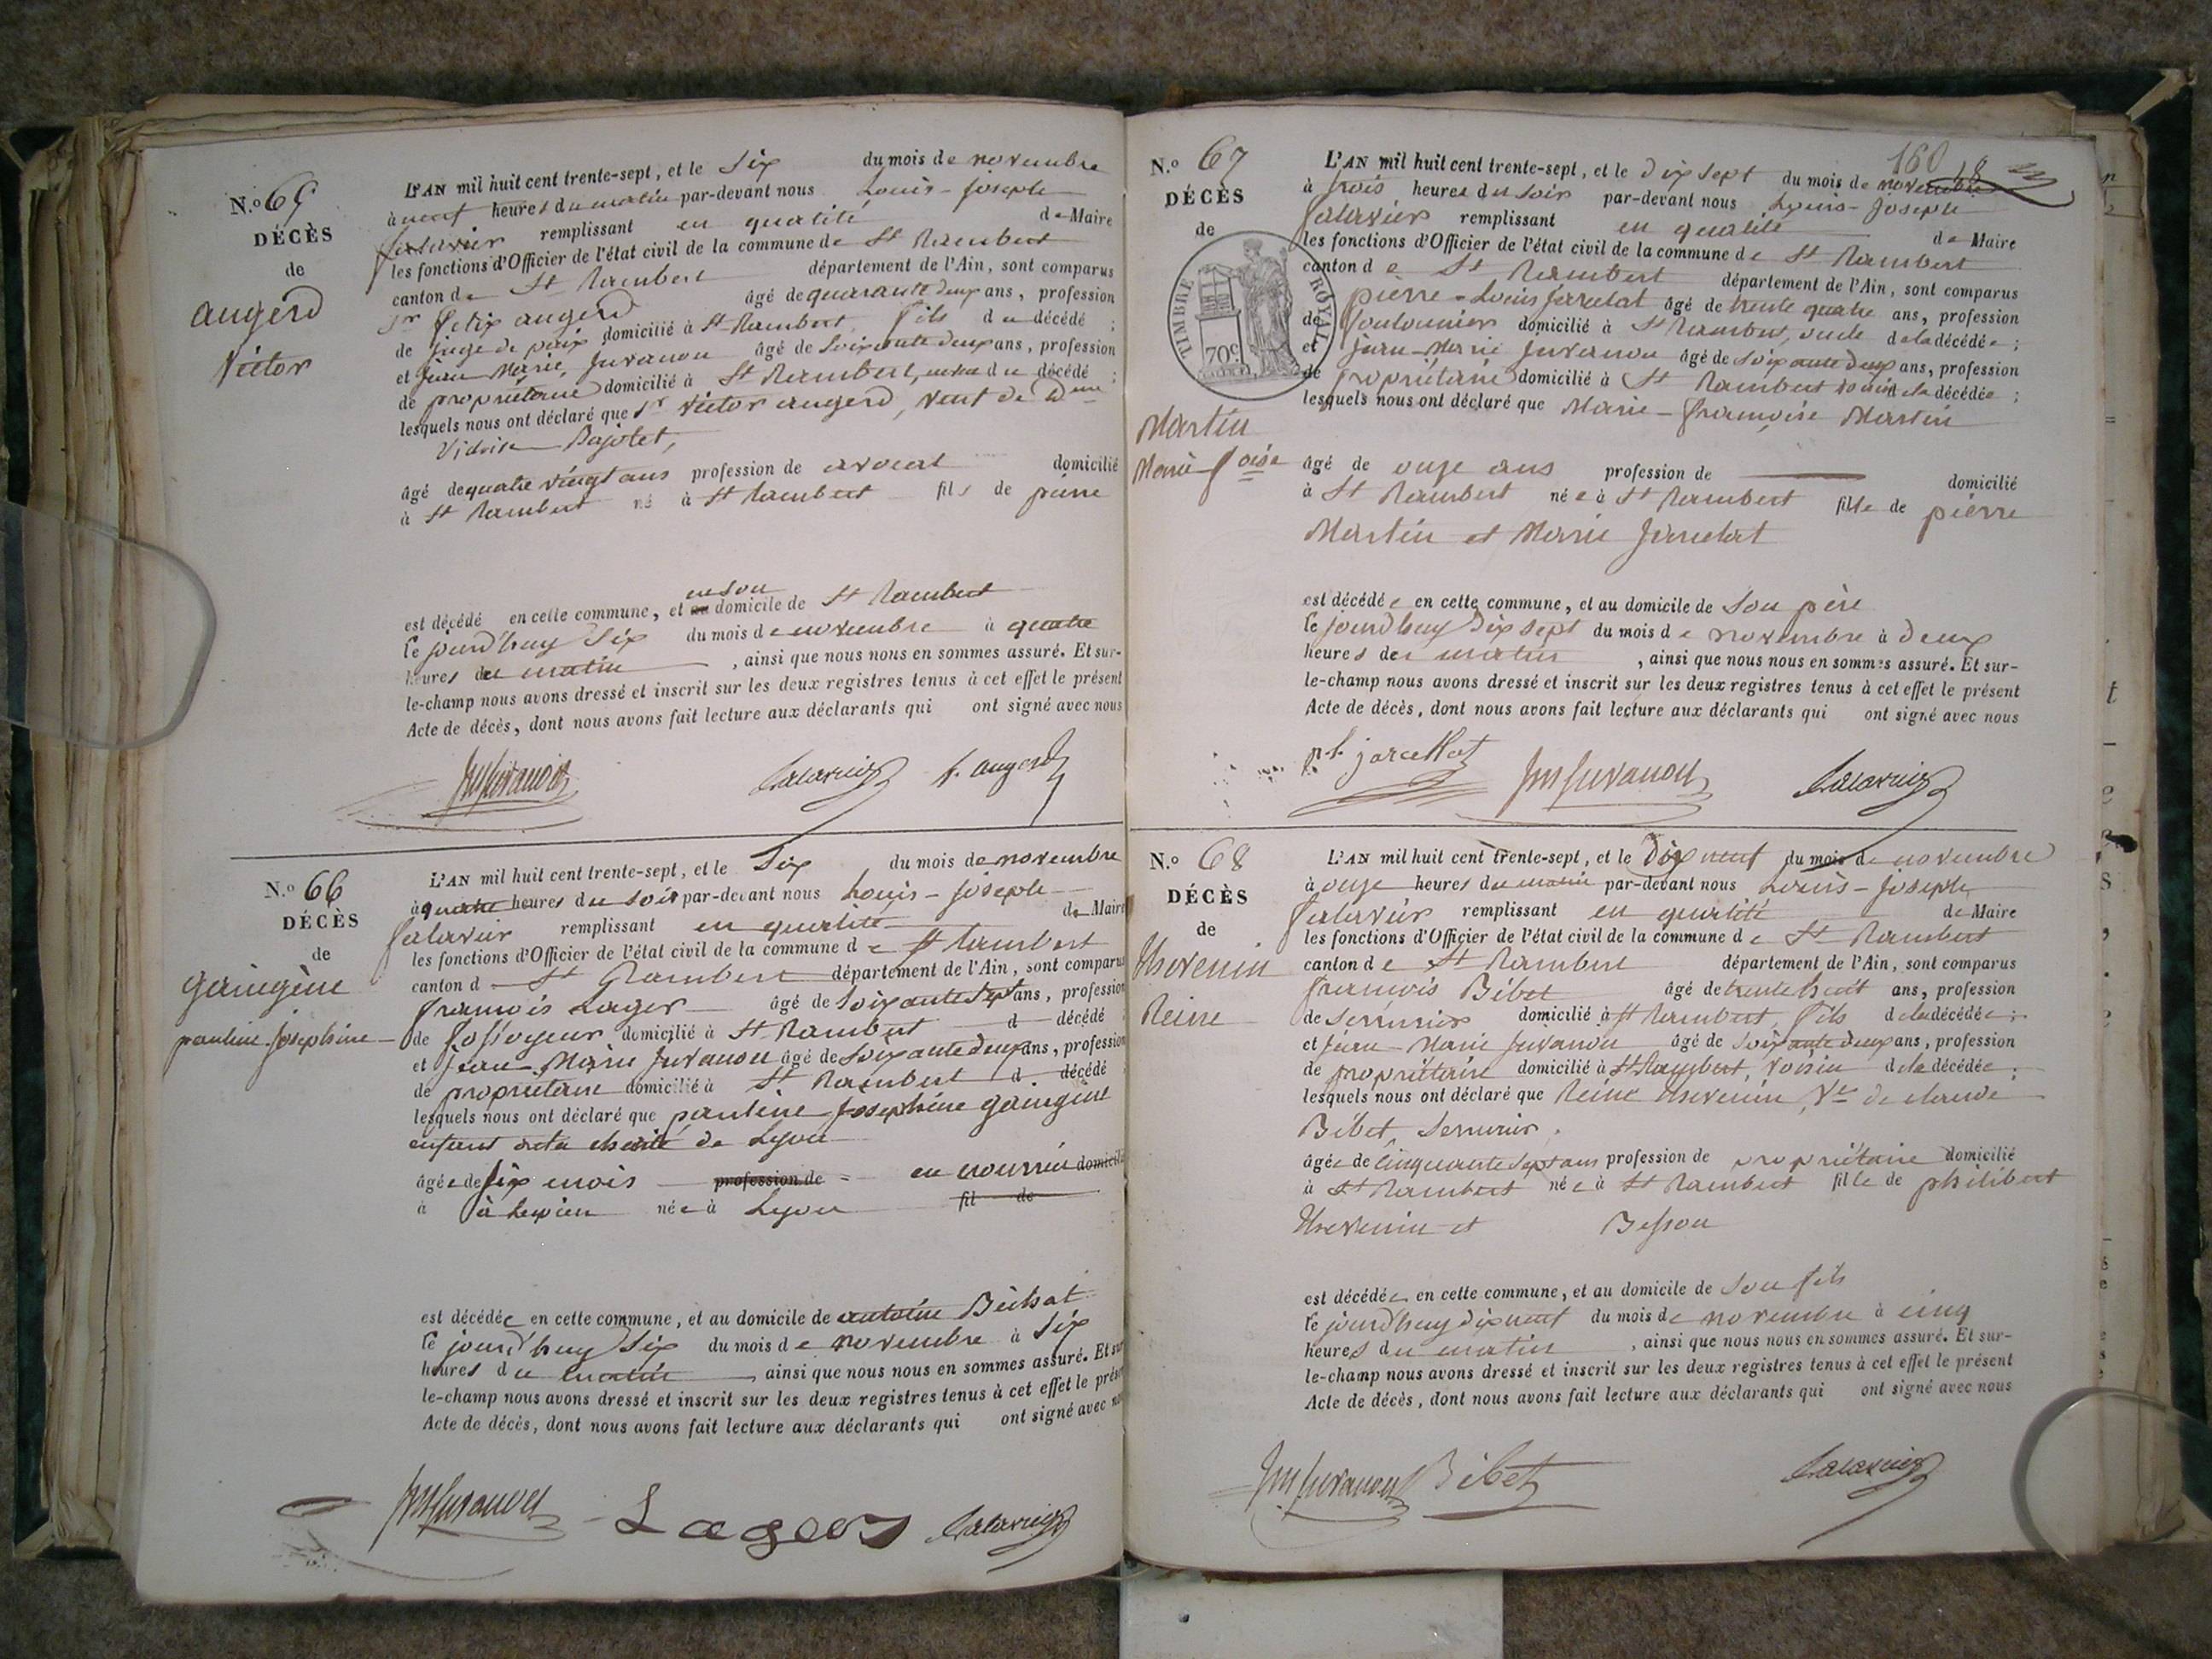 N.º 65
DÉCÈS
de
augerd
Victor
L'AN mil huit cent trente-sept, et le Six du mois de novembre
à neuf heures du matin par-devant nous Louis-joseph
falavier remplissant en qualité de Maire
les fonctions d'Officier de l'état civil de la commune de St Rambert
canton de St Rambert département de l'Ain, sont comparus
Sr félix augerd âgé de quarante deux ans, profession
de juge de paix domicilié à St Rambert fils du décédé ;
et jean Marie Juvanon âgé de Soixante deux ans, profession
de propriétaire domicilié à St Rambert, du décédé ;
lesquels nous ont déclaré que Sr victor augerd, veuf de Dme
Bajolet,
âgé de quatre vingt ans profession de avocat domicilié
à St Rambert né à St Rambert fils de pierre
en son
est décédé en cette commune, et au domicile de St Rambert
le jourd'huy Six du mois de novembre à quatre
heures du matin , ainsi que nous nous en sommes assuré. Et sur-
le-champ nous avons dressé et inscrit sur les deux registres tenus à cet effet le présent
Acte de décès, dont nous avons fait lecture aux déclarants qui ont signé avec nous
JM Juvanon falavier f. augerd
N.º 66
DÉCÈS
de
gaingène
pauline josephine
L'AN mil huit cent trente-sept, et le Six du mois de novembre
à quatre heures du soir par-devant nous Louis-joseph
falavier remplissant en qualité de Maire
les fonctions d'Officier de l'état civil de la commune de St Rambert
canton d St Rambert département de l'Ain, sont comparus
françois Lager âgé de Soixante Sept ans, profession
de fossoyeur domicilié à St Rambert d décédé
et jean Marie Juvanon âgé de Soixante deux ans, profession
de propriétaire domicilié à St Rambert d décédé
lesquels nous ont déclaré que pauline josephine gaingène
enfant de la charité de Lyon
âgée de Six mois profession de en nourrice domicilié
à à née à Lyon fil de
est décédée en cette commune, et au domicile de antoine Béchat
le jourd'huy Six du mois de novembre à Six
heures du matin , ainsi que nous nous en sommes assuré. Et sur
le-champ nous avons dressé et inscrit sur les deux registres tenus à cet effet le présent
Acte de décès, dont nous avons fait lecture aux déclarants qui ont signé avec nous
JM Juvanon Lager falavier
160
N.º 67
DÉCÈS
de
TIMBRE ROYAL
70c
Martin
Marie foise
L'AN mil huit cent trente-sept, et le dix sept du mois de novembre
à trois heures du soir par-devant nous Louis-Joseph
falavier remplissant en qualité de Maire
les fonctions d'Officier de l'état civil de la commune de St Rambert
canton de St Rambert département de l'Ain, sont comparus
pierre-Louis jarcelat âgé de trente quatre ans, profession
de domicilié à St Rambert, oncle de la décédée ;
et jean-Marie Juvanon âgé de Soixante deux ans, profession
de propriétaire domicilié à St Rambert voisin de la décédée ;
lesquels nous ont déclaré que Marie-françoise Martin
âgé de onze ans profession de domicilié
à St Rambert née à St Rambert fille de pierre
Martin et Marie Jarcelat
est décédée en cette commune, et au domicile de Son père
le jourd'huy Dix Sept du mois de novembre à deux
heures du matin , ainsi que nous nous en sommes assuré. Et sur-
le-champ nous avons dressé et inscrit sur les deux registres tenus à cet effet le présent
Acte de décès, dont nous avons fait lecture aux déclarants qui ont signé avec nous
p.l. jarcellat JM Juvanon falavier
N.º 68
DÉCÈS
de
thevenin
Reine
L'AN mil huit cent trente-sept, et le Dix neuf du mois de novembre
à onze heures du matin par-devant nous Louis-joseph
falavier remplissant en qualité de Maire
les fonctions d'Officier de l'état civil de la commune de St Rambert
canton de St Rambert département de l'Ain, sont comparus
françois Bébet âgé de trente huit ans, profession
de Serrurier domicilié à St Rambert, fils de la décédée ;
et jean-Marie Juvanon âgé de Soixante deux ans, profession
de propriétaire domicilié à St Rambert, voisin de la décédée ;
lesquels nous ont déclaré que Reine thevenin, Ve de claude
Bébet Serrurier.
âgée de Cinquante Sept ans profession de propriétaire domicilié
à St Rambert née à St Rambert fille de philibert
thevenin et Besson
est décédée en cette commune, et au domicile de Son fils
le jourd'huy dix neuf du mois de novembre à cinq
heures du matin , ainsi que nous nous en sommes assuré. Et sur-
le-champ nous avons dressé et inscrit sur les deux registres tenus à cet effet le présent
Acte de décès, dont nous avons fait lecture aux déclarants qui ont signé avec nous
JM Juvanon Bébet falavier